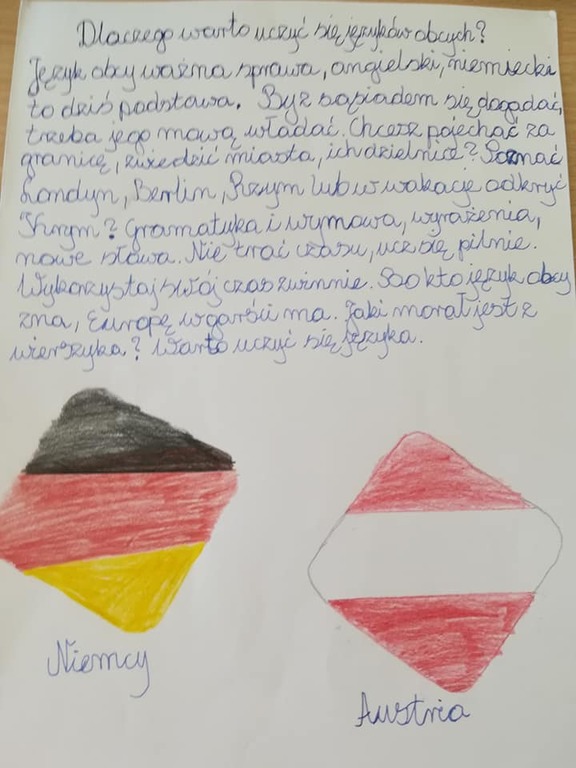 Dlaczego warto uczyć się języków obcych?
Język obcy ważna sprawa, angielski, niemiecki
to dziś podstawa. Byś z sąsiadem się dogadać,
trzeba jego mową władać. Chcesz pojechać za
granicę, zwiedzić miasta, ich dzielnice? Poznać
Londyn, Berlin, Rzym lub w wakacje odkryć
Krym? Gramatyka i wymowa, wyrażenia,
nowe słowa. Nie trać czasu, ucz się pilnie.
Wykorzystaj swój czas zwinnie. Bo kto język obcy
zna, Europę w garści ma. Jaki morał jest z
wierszyka? Warto uczyć się języka.
Niemcy
Austria